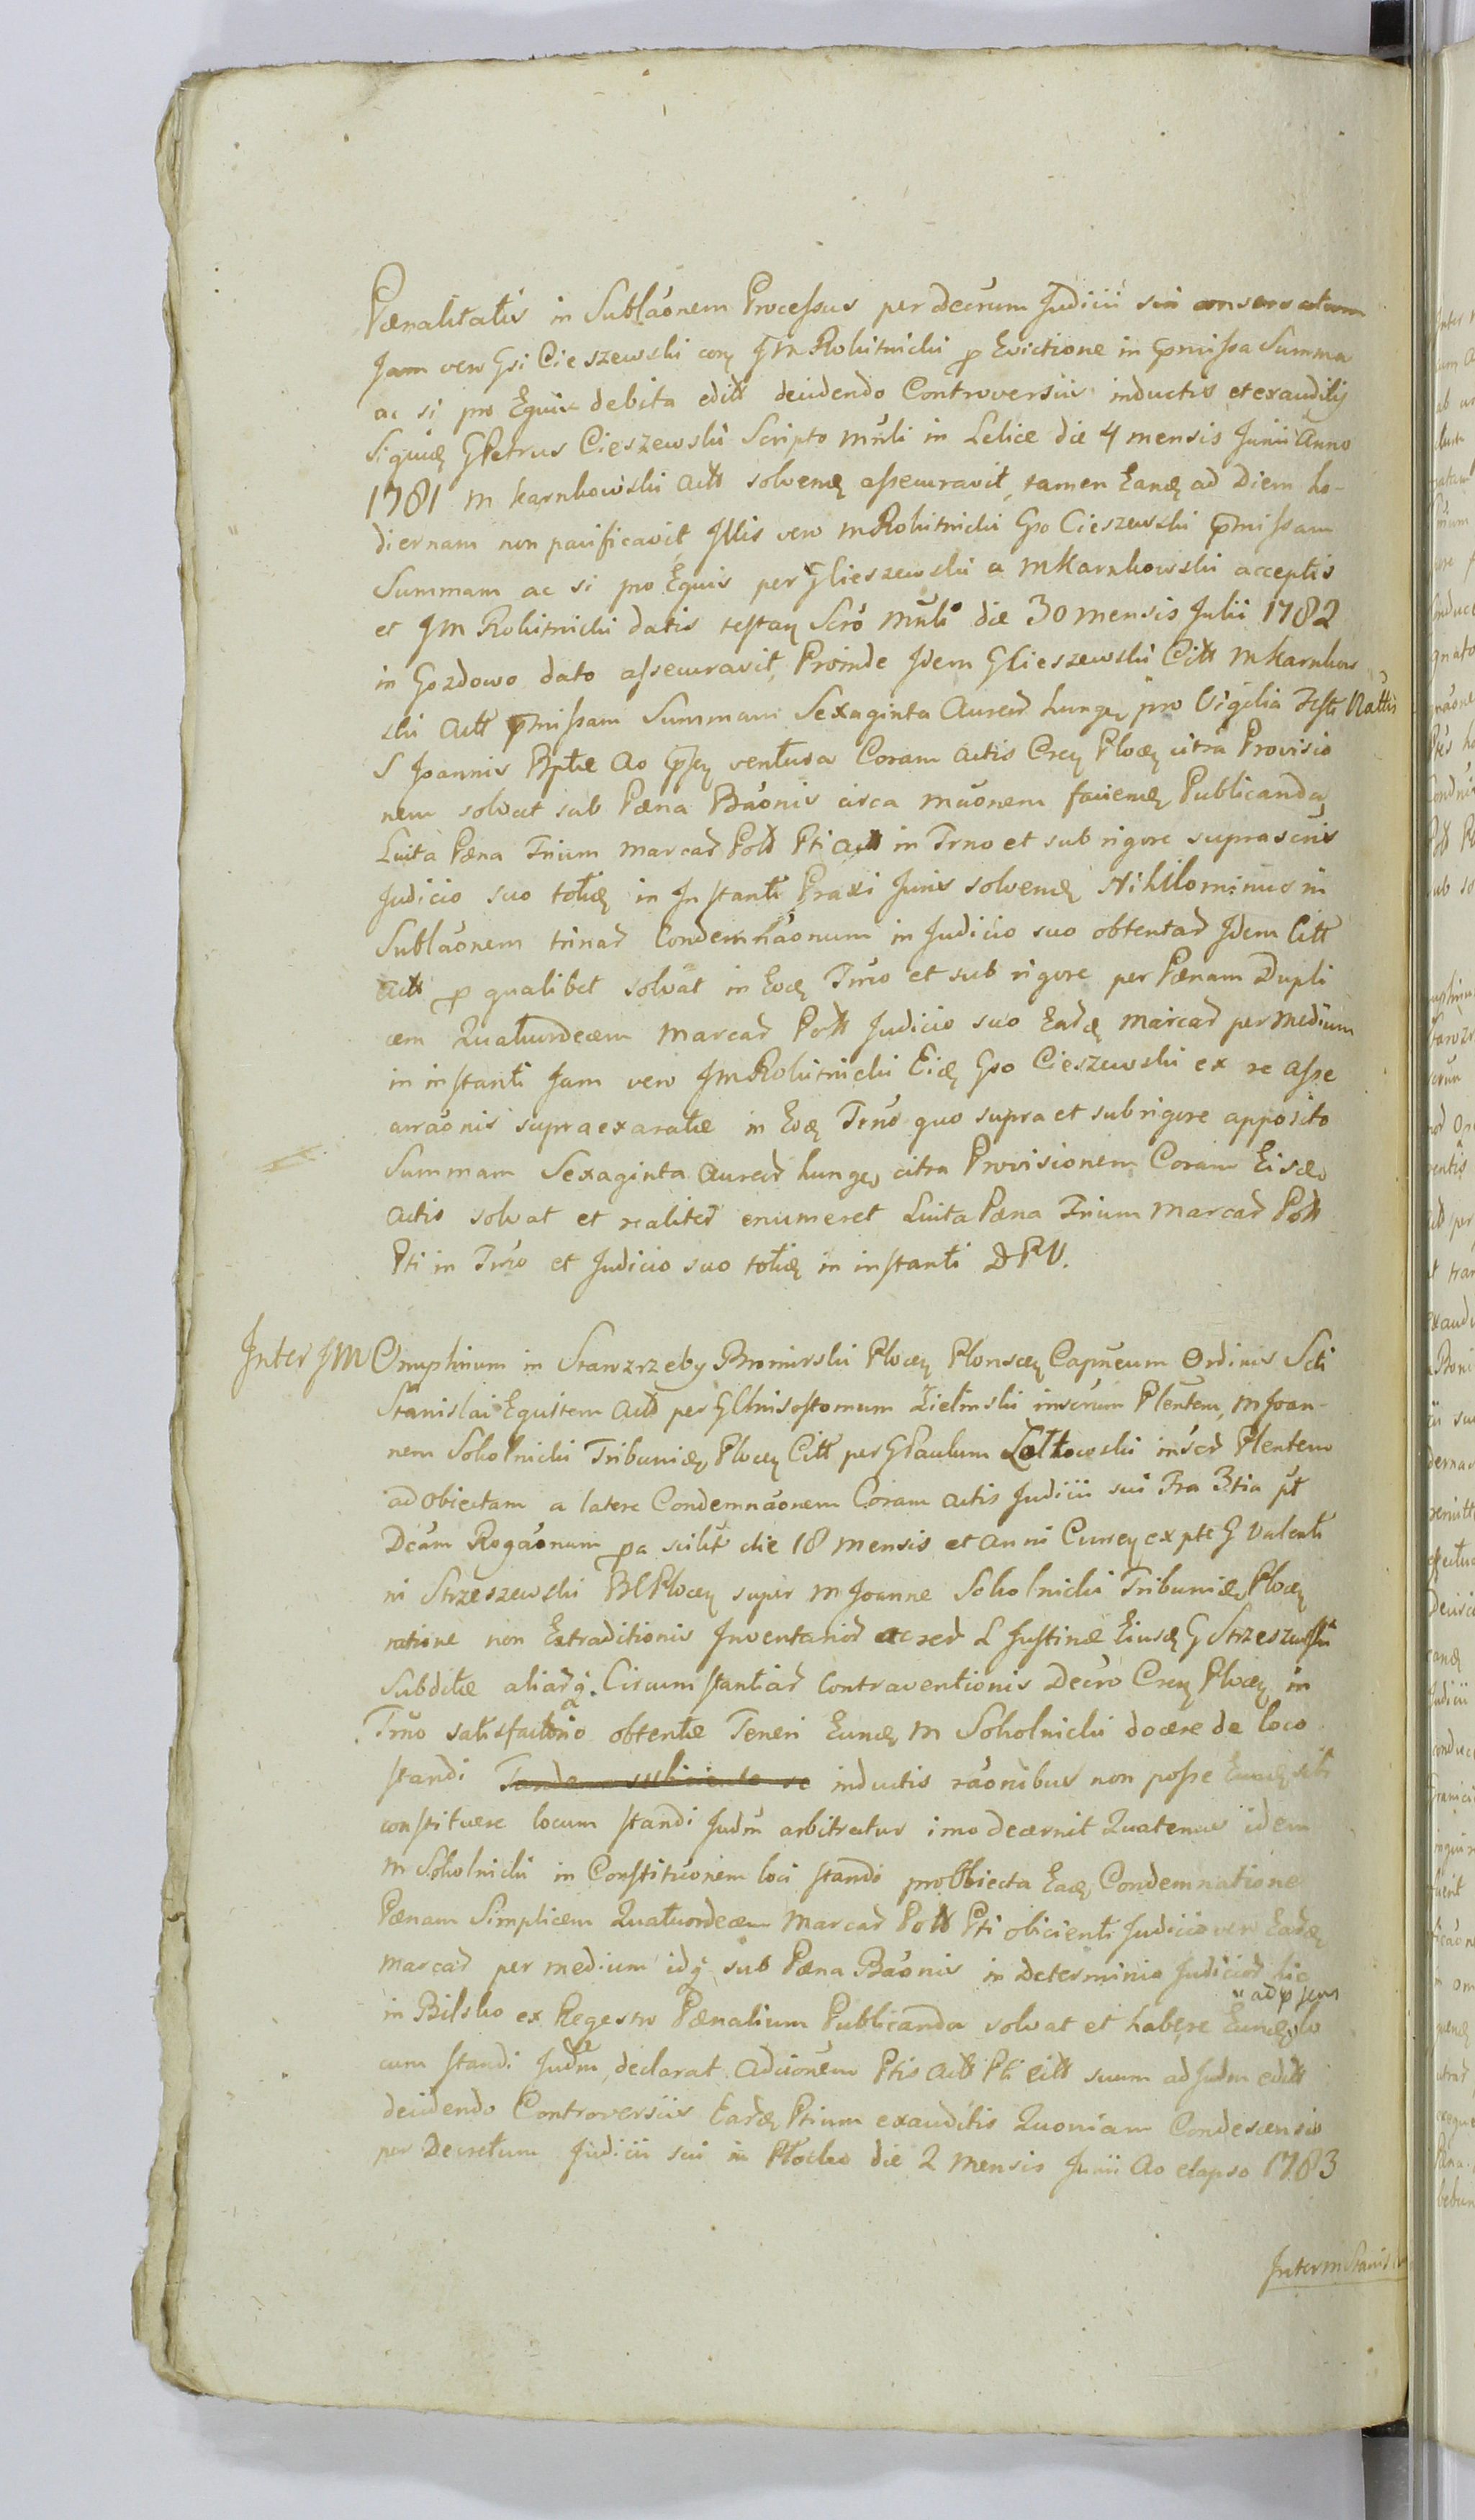 Pænalitatis in Sublāonem Processus per decrum Judicii sui conservatum
Jam vero Gsi Cieszewski conq JM Rokitnicki p Evictione in pmissa Summa
ac si pro Equis debita editt decidendo Controversiis inductis et exauditis
Siquidq GPetrus Cieszewski Scripto mnli in Lelice die 4 mensis Junii Anno
1781 M Karnkowski Actt solvendq assecuravit, tamen Eandq ad Diem ho-
diernam non pacificavit Illis vero MRokitnicki Gso Cieszewski pmissam
Summam ac si pro Equis per GCieszewski a MKarnkowski acceptis
et JM Rokitnicki datis testanq Scro mnli die 30 mensis Julii 1782
in Gozdowo dato assecuravit, Proinde Idem GCieszewski Citt MKarnkow
ski Actt pmissam Summam Sexaginta Aureor hungq pro Vigilia Festi Nattis
S Joannis Bptæ Ao psq ventura Coram Actis Crenq Plocq citra Provisio
nem solvat sub Pæna Bāonis circa mōonem faciendq Publicanda,
Luita Pæna Trium Marcar Poltt Pti Actt in Trno et sub rigore suprascris
Judicio suo totidq in Instanti Praxi Juris solvendq Nihilominus in
Sublāonem trinar Condemnāonum in Judicio suo obtentar Idem Citt
Actt p qualibet solvat in Eodq Trno et sub rigore per Pænam Dupli
cem Quatuordecem Marcar Poltt Judicio suo Eardq Marcar per medium
in instanti Jam vero JMRokitnicki Eidq Gso Cieszewski ex re asse
curāonis supraexaratæ in Eodq Trno quo supra et sub rigore apposito
Summam Sexaginta Aureor hungq citra Provisionem Coram Eisdq
Actis solvat et realiter enumeret Luita Pæna Trium Marcar Poltt
Pti in Trno et Judicio suo totidq in instanti DPV.
Inter JM Onuphrium in Stawzrzeby Bromirski Plocq Plonscq Capneum Ordinis Scti
Stanislai Equitem Actt per GChrisostomum Zielinski inscrum Plentem, M Joan-
nem Sokolnicki Tribunidq Plocq Citt per GPaulum Zołtowski inscr Plentem
ad obiectam a latere Condemnāonem Coram Actis Judicii sui Fra 3tia pt
Dcam Rogāonum pa scilit die 18 mensis et anni Currenq ex pte G Valenti
ni Strzeszewski BCPlocq super M Joanne Sokolnicki Tribunidæ Plocq
ratione non Extraditionis Inventarior ac red L Justinæ Eiusdq G Strzeszewski
Subditæ aliarq Circumstantiar Contraventionis Decro Crenq Plocq in
Trno satisfactorio obtentæ Teneri Eundq M Sokolnicki docere de loco
standi Tandem subiciente se inductis rāonibus non posse Eundq sibi
constituere locum standi Judm arbitratur imo decernit Quatenus idem
M Sokolnicki in Constituonem loci standi pro Obiecta Eadq Condemnatione
Pænam Simplicem Quatuordecem Marcar Poltt Pti obicienti Judicio vero Eardq
Marcar per medium idq sub Pæna Bāonis in Determinio Judicior hic
in Bilsko ex Regestro Pænalium Publicanda solvat et habere Eundq ad psens lo
cum standi Judm, declarat Adcionem Ptis Actt Pti Citt suum ad Judm editt
decidendo Controversiis Eardq Ptium exauditis Quoniam Condescensio
per Decretum Judicii sui in Płocko die 2 mensis Junii Ao elapso 1783
Inter M Stanis